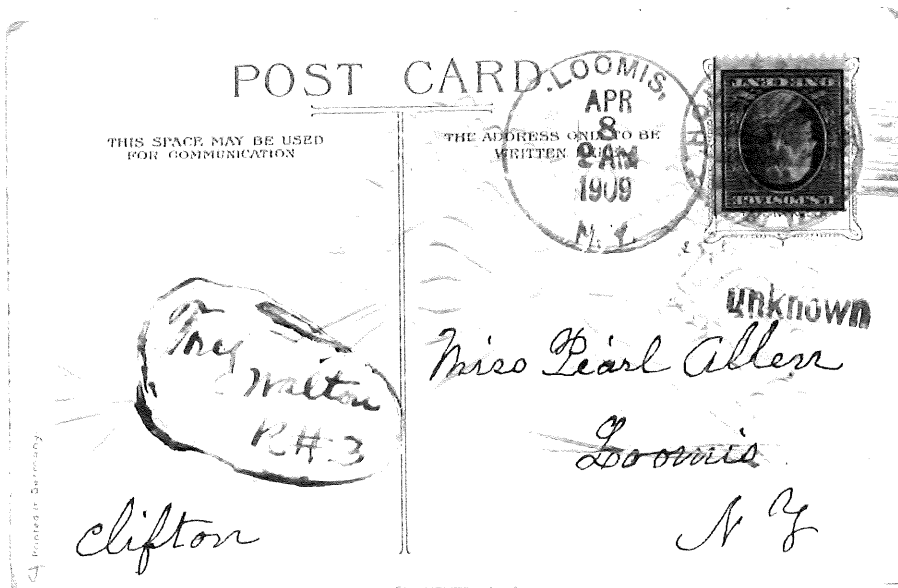 POST CARD
THIS SPACE MAY BE USED
FOR COMMUNICATION
THE ADDRESS ONLY TO BE
WRITTEN
LOOMIS,
APR
8
9 AM
1909
N.Y.
U.S. POSTAGE
unknown
Try
Walton
R#3
Miss Pearl Allen
Loomis
N Y
Clifton
Printed in Germany